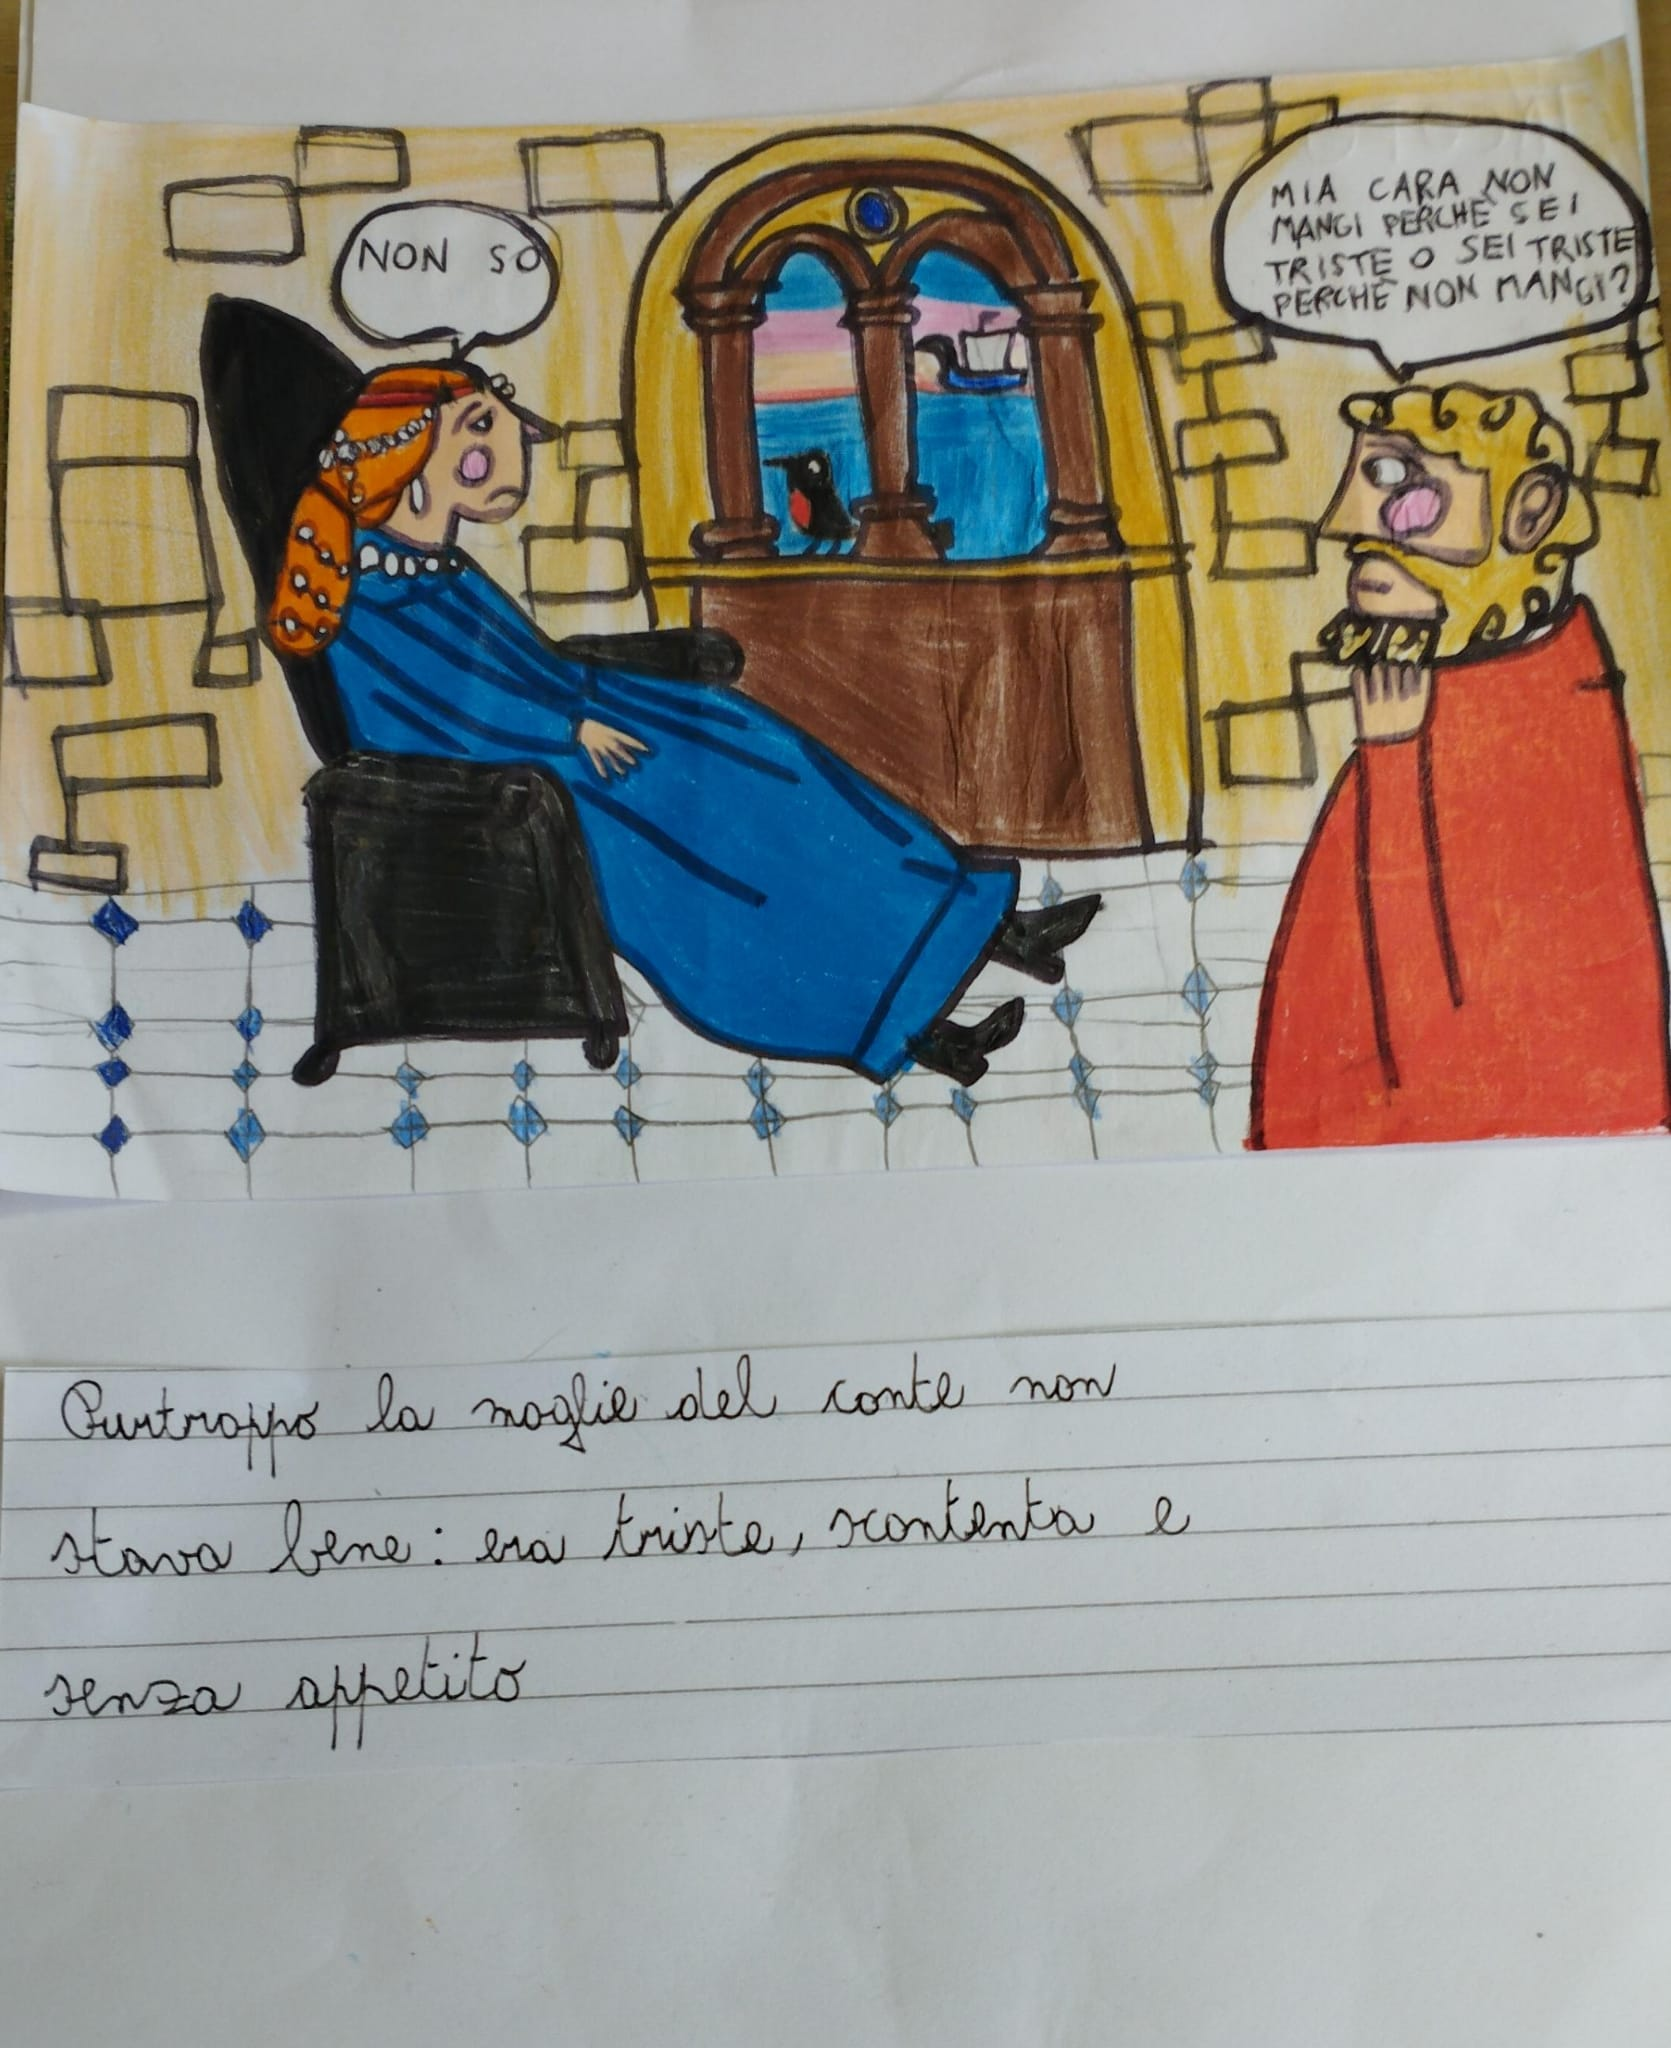 NON SO
MIA CARA NON
MANGI PERCHÈ SEI
TRISTE O SEI TRISTE
PERCHÈ NON MANGI?
Purtroppo la moglie del conte non
stava bene: era triste, scontenta e
senza appetito